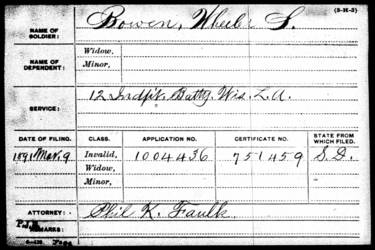 (3-H-3)
NAME OF SOLDIER: Bowen, Wheeler S.
NAME OF DEPENDENT: Widow,
Minor,
SERVICE: 12 Indpt. Batty. Wis. L.A.
DATE OF FILING. CLASS. APPLICATION NO. CERTIFICATE NO. STATE FROM WHICH FILED.
1891 Mar. 9 Invalid, 1004436 751459 S.D.
Widow,
Minor,
ATTORNEY: Phil K. Faulk
REMARKS: